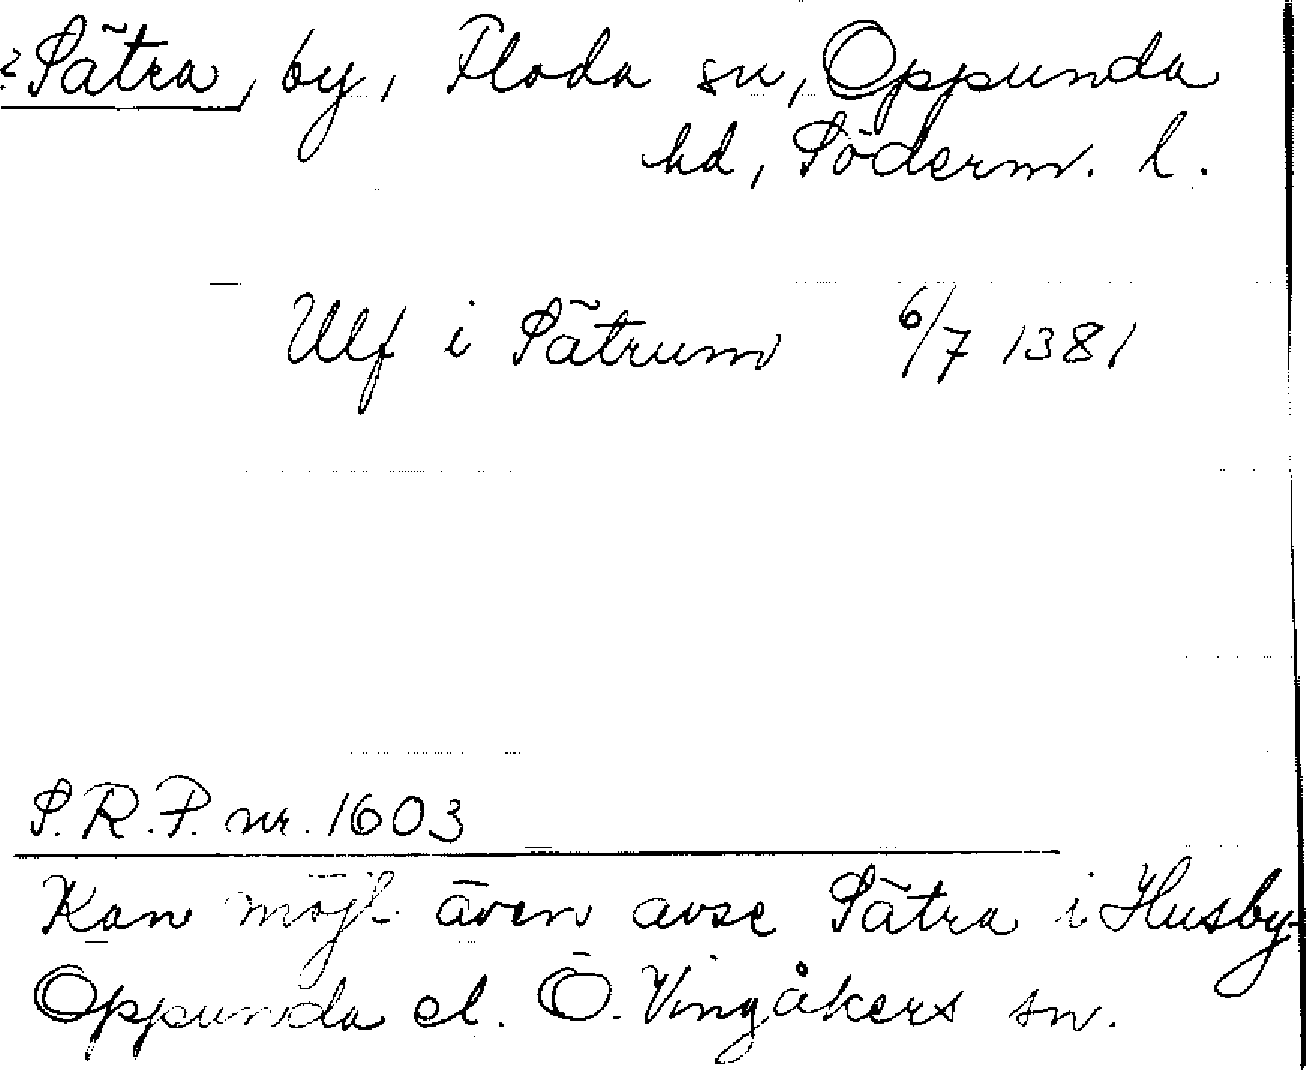 ? Sätra, by, Floda sn, Oppunda
hd, Söderm. l.
Ulf i Sätrum 6/7 1381
S.R.P. nr. 1603
Kan möjl. även avse Sätra i Husby-
Oppunda el. Ö. Vingåkers sn.